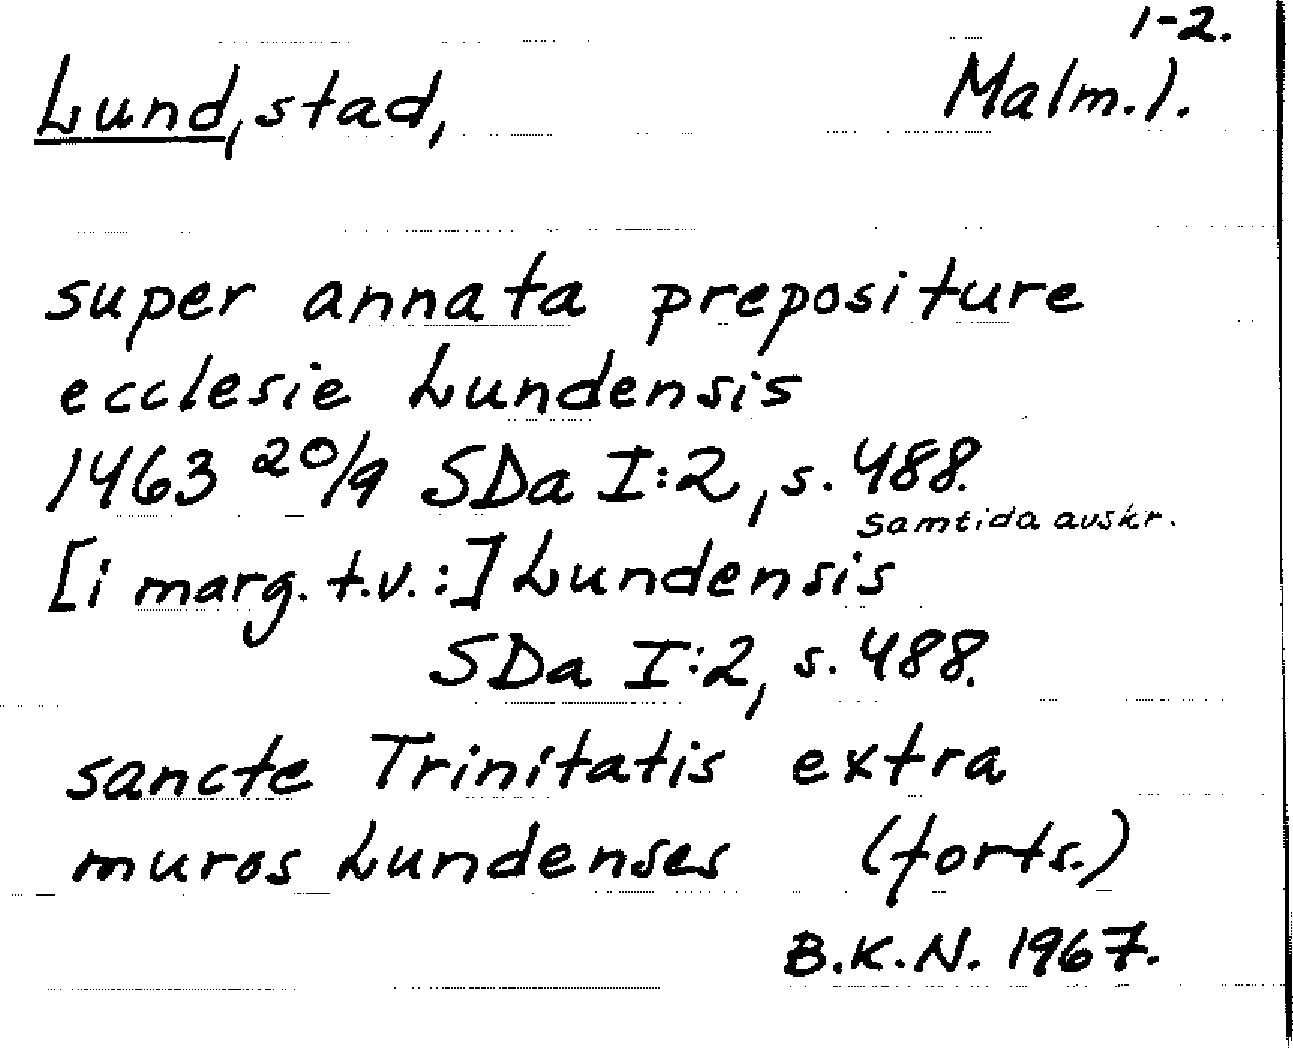 1-2.
Lund, stad, Malm. l.
super annata prepositure
ecclesie Lundensis
1463 20/9 SDa I:2, s. 488.
Samtida avskr.
[i marg. t.v.:] Lundensis
SDa I:2, s. 488.
sancte Trinitatis extra
muros Lundenses (forts.)
B.K.N. 1967.